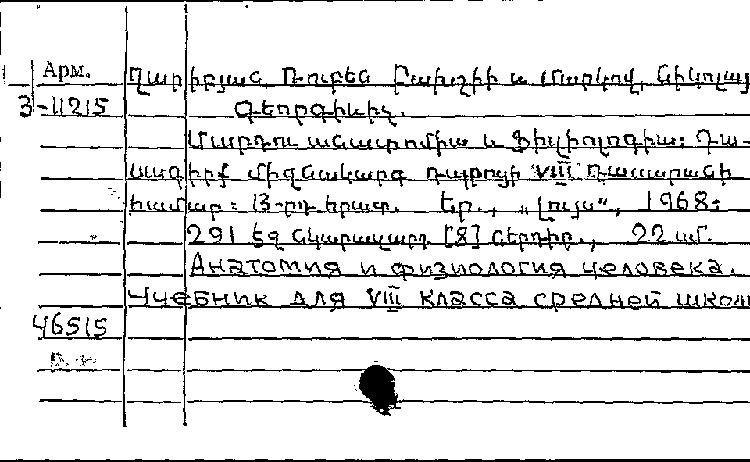 Арм. Ղարիբյան Ռուբեն Բախշիի և Մարկով Նիկոլայ
3-11215 Գեորգիևիչ.
Մարդու անատոմիա և ֆիզիոլոգիա: Դա-
սագիրք միջնակարգ դպրոցի VIII դասարանի
համար: 13-րդ հրատ. Եր., „Լույս“, 1968:
291 էջ նկարազարդ [8] ներդիր., 22 սմ.
Анатомия и физиология человека.
Учебник для VIII класса средней школ
46515